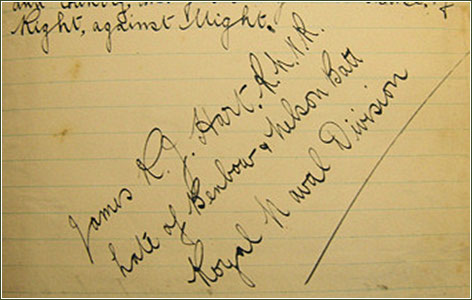 and
Right, against Might.
James R. J. Hart. R.N.V.R.
Late of Benbow & Nelson Batt
Royal Naval Division